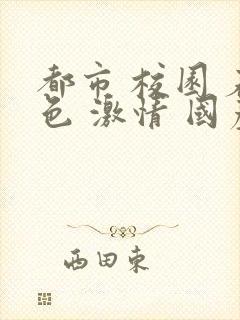 都市校园
色激情国
西田東